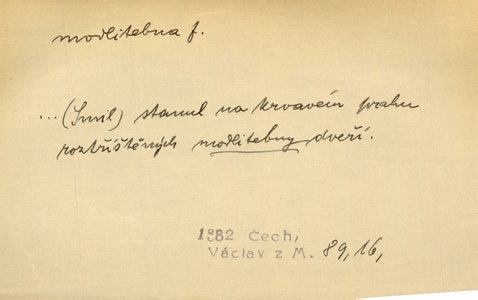 modlitebna f.
... (Smil) stanul na krvavém prahu
roztříštěných modlitebny dveří.
1882 Čech,
Václav z M. 89, 16,